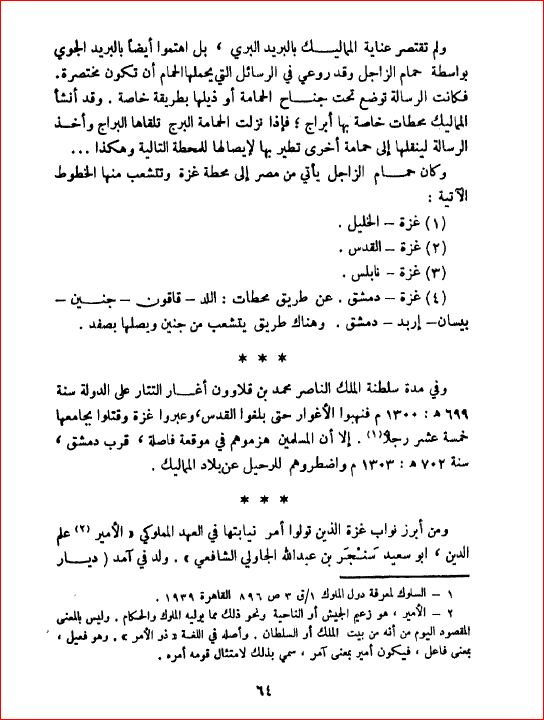 ولم تقتصر عناية المماليك بالبريد البري ، بل اهتموا أيضاً بالبريد الجوي
بواسطة حمام الزاجل وقد روعي في الرسائل التي يحملها الحمام أن تكون مختصرة.
فكانت الرسالة توضع تحت جناح الحمامة أو ذيلها بطريقة خاصة . وقد أنشأ
المماليك محطات خاصة بها أبراج ؛ فإذا نزلت الحمامة البرج تلقاها البراج وأخذ
الرسالة لينقلها إلى حمامة أخرى تطير بها لإيصالها للمحطة التالية وهكذا ...
وكان حمام الزاجل يأتي من مصر إلى محطة غزة وتتشعب منها الخطوط
الآتية :
(١) غزة – الخليل .
(٢) غزة – القدس .
(٣) غزة – نابلس .
(٤) غزة – دمشق . عن طريق محطات : اللد – قاقون – جنين –
بيسان – إربد – دمشق . وهناك طريق يتشعب من جنين ويصلها بصفد .
* * *
وفي مدة سلطنة الملك الناصر محمد بن قلاوون أغار التتار على الدولة سنة
٦٩٩ ه : ١٣٠٠ م فنهبوا الأغوار حتى بلغوا القدس ، وعبروا غزة وقتلوا بجامعها
خمسة عشر رجلاً (١) . إلا أن المسلمين هزموهم في موقعة فاصلة ، قرب دمشق ،
سنة ٧٠٢ ه : ١٣٠٣ م واضطروهم للرحيل عن بلاد المماليك .
* * *
ومن أبرز نواب غزة الذين تولوا أمر نيابتها في العهد المملوكي « الأمير (٢) علم
الدين ، ابو سعيد سَنْجَر بن عبدالله الجاولي الشافعي » . ولد في آمد ( ديار
١ – السلوك لمعرفة دول الملوك ١/ق ٣ ص ٨٩٦ القاهرة ١٩٣٩ .
٢ – الأمير ، هو زعيم الجيش أو الناحية ونحو ذلك مما يوليه الملوك والحكام . وليس بالمعنى
المقصود اليوم من أنه من بيت الملك أو السلطان . وأصله في اللغة « ذو الأمر » . وهو فعيل ،
بمعنى فاعل ، فيكون أمير بمعنى آمر ، سمي بذلك لامتثال قومه أمره .
٦٤